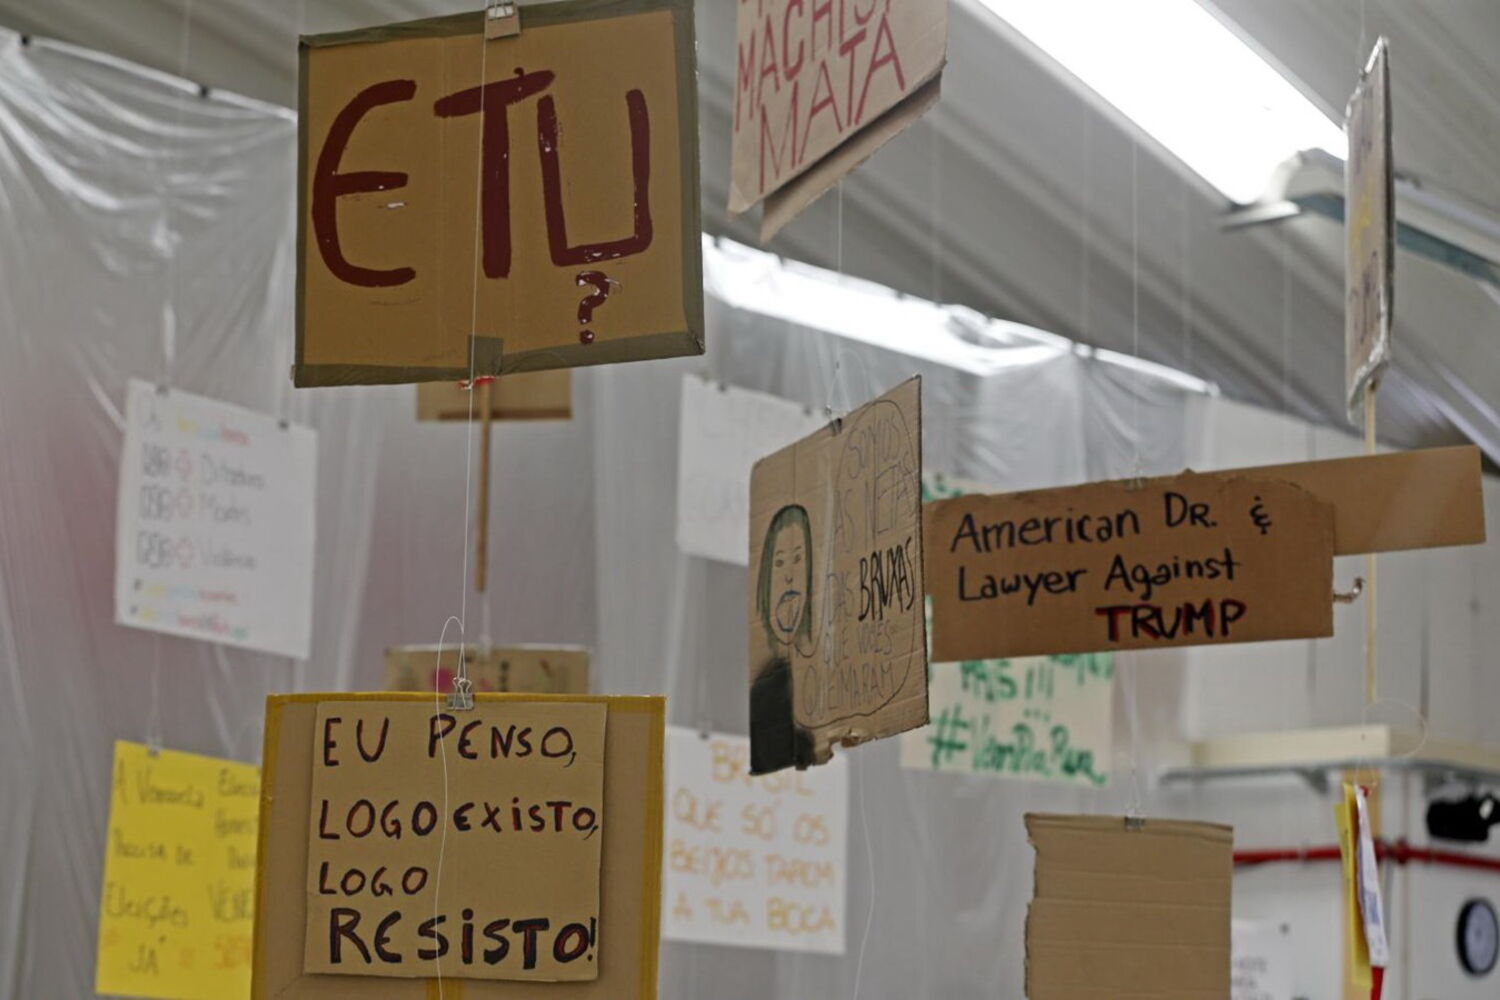 E TU
?
MACHISMO
MATA
Ditadura
Mortes
Violência
SOMOS
AS NETAS
DAS BRUXAS
QUE VOCÊS
QUEIMARAM
American DR. &
Lawyer Against
TRUMP
PAÍS!!!
#VemPraRua
EU PENSO,
LOGO EXISTO,
LOGO
RESISTO!
A Venezuela
Precisa de
Eleições
JÁ
BRASIL
QUE SÓ OS
BEIJOS TAPEM
A TUA BOCA